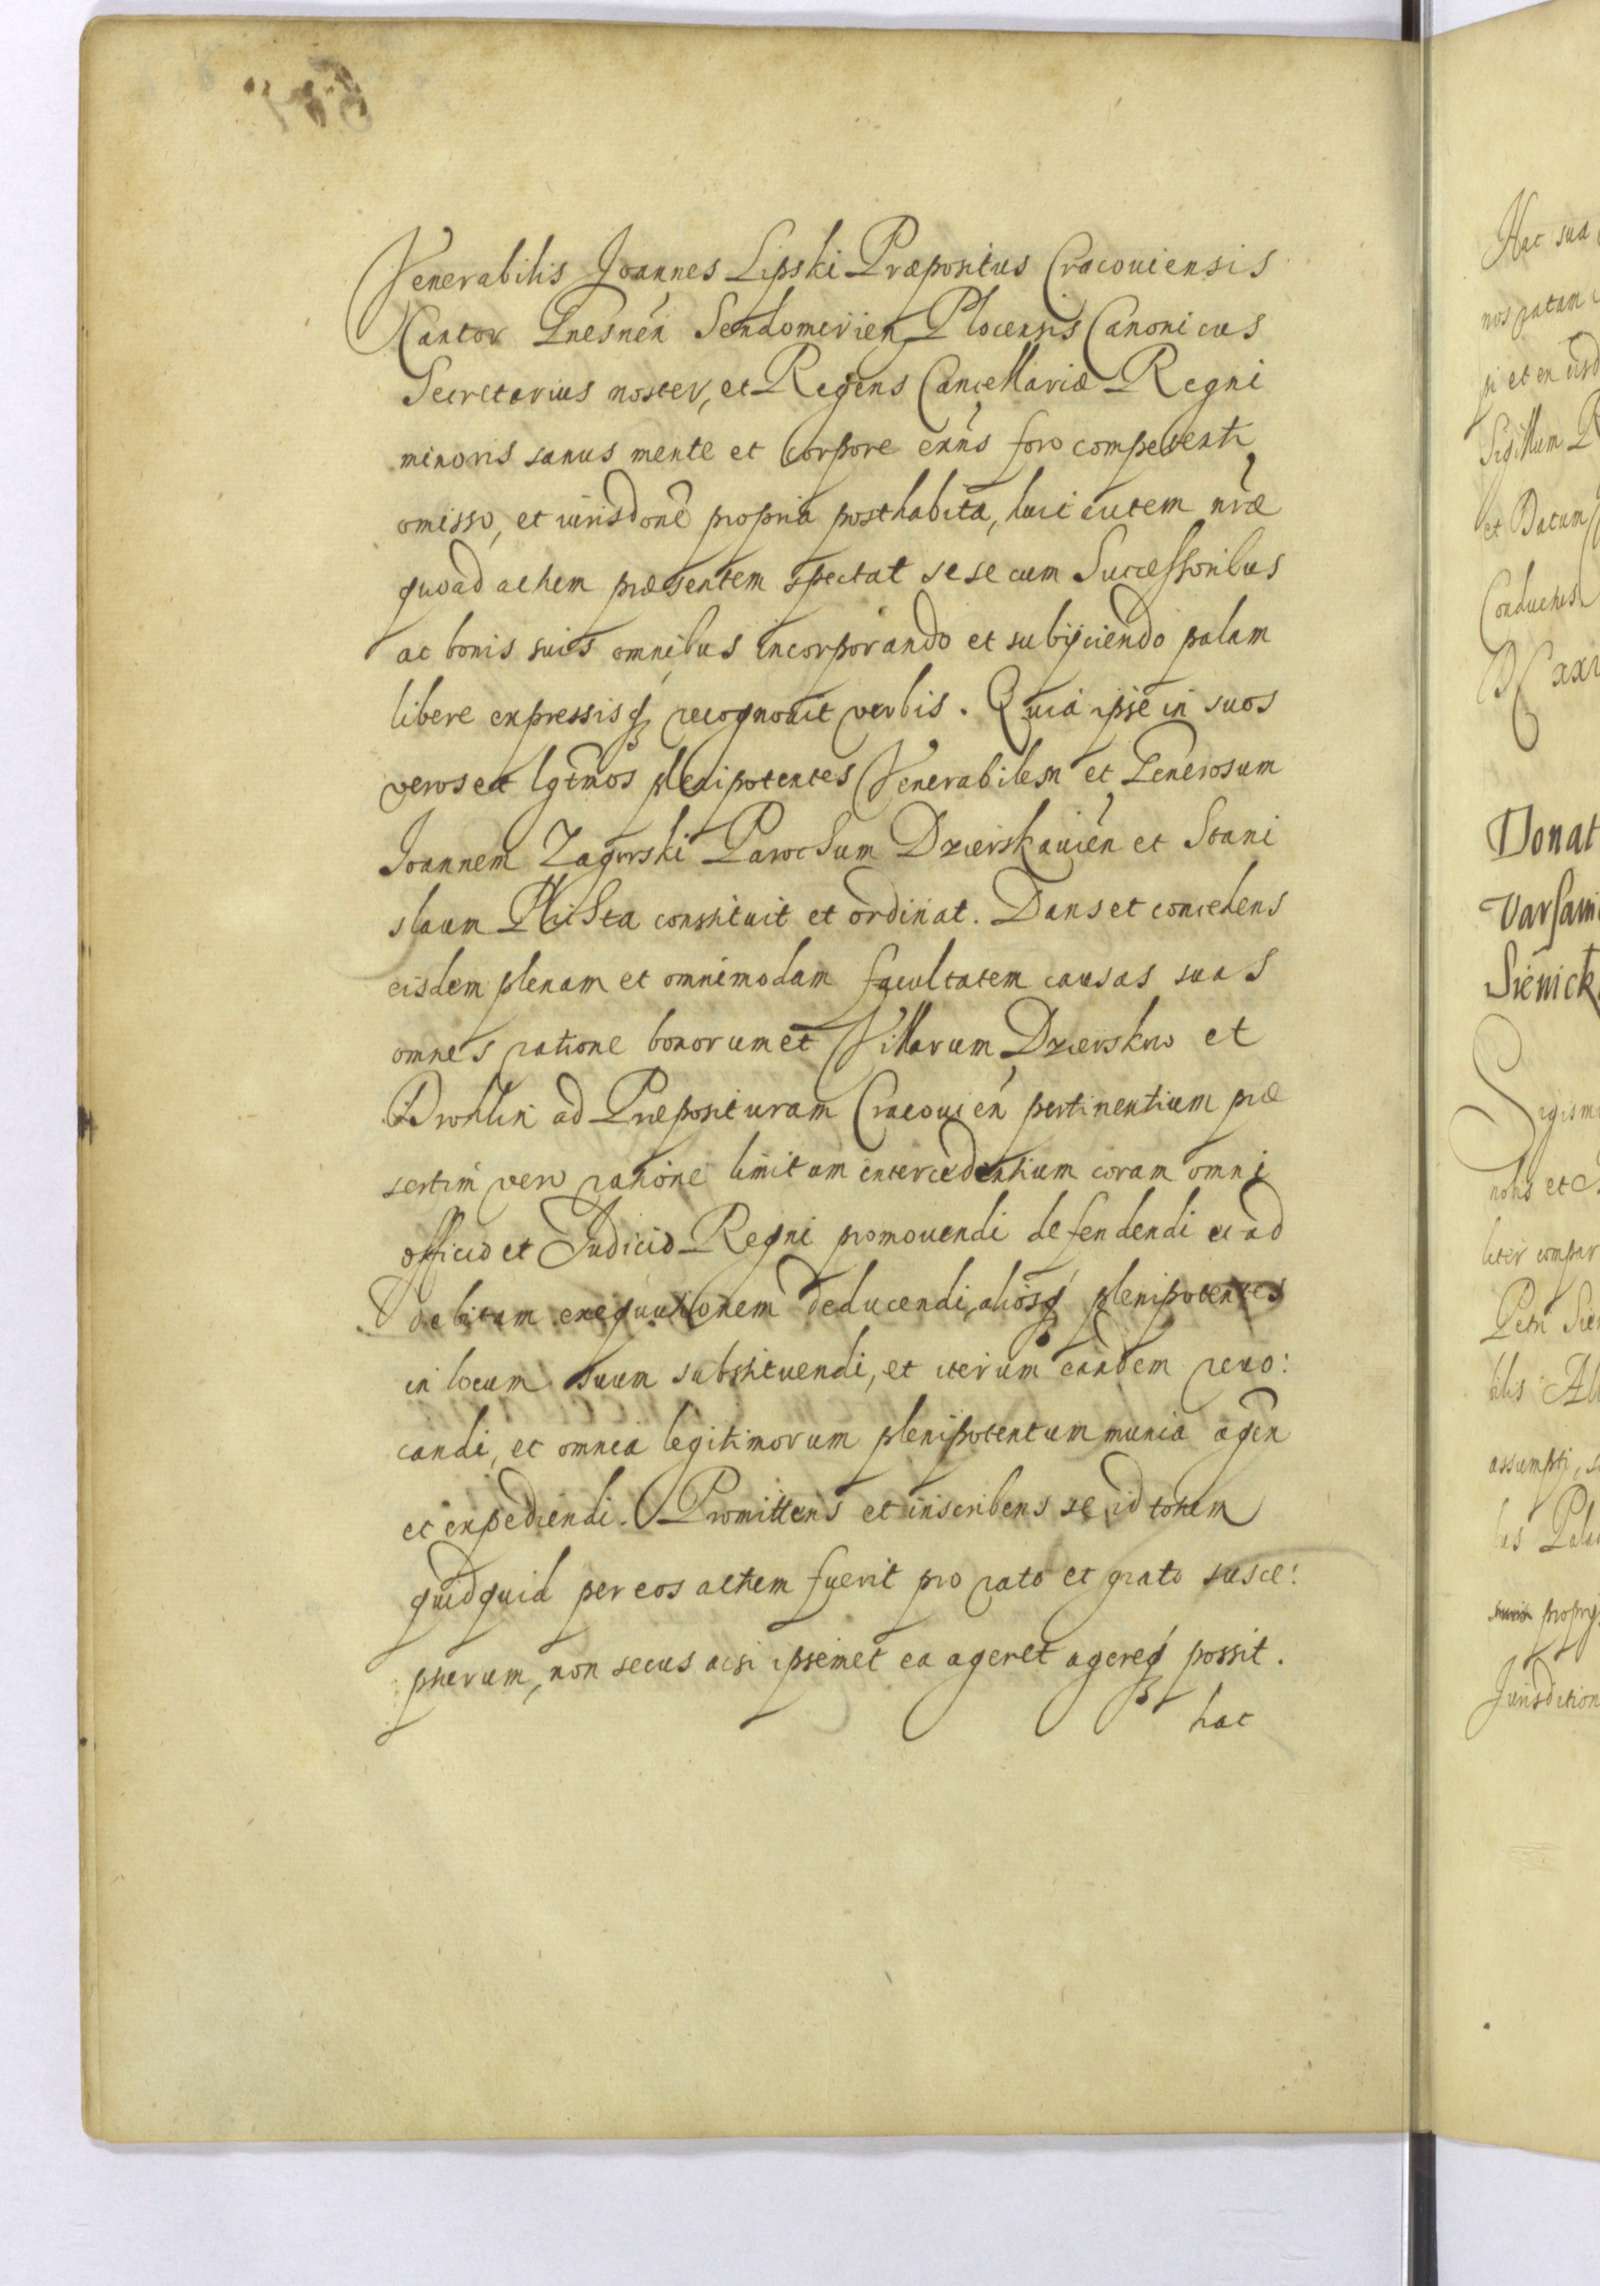 Venerabilis Joannes Lipski Præpositus Cracouiensis
Cantor Gnesnen̄ Sendomirien Plocensis Canonicus
Secretarius noster, et Regens Cancellariæ Regni
minoris sanus mente et corpore exn̄s foro competenti
omisso, et iurisdone propria posthabita, huic autem nr̄æ
quoad actum præsentem spectat sese cum Successoribus
ac bonis suis omnibus incorporando et subijciendo palam
libere expressisq recognouit verbis. Quia ipse in suos
veros et lgtmos plenipotentes Venerabilem et Generosum
Joannem Zagorski Parochum Dzierskauien̄ et Stani
slaum constituit et ordinat. Dans et concedens
eisdem plenam et omnimodam facultatem causas suas
omnes ratione bonorum et Villarum Dzierskow et
ad Præposituram Cracouien̄ pertinentium præ
sertim vero ratione limitum intercedentium coram omni
officio et Judicio Regni promouendi defendendi et ad
debitam exequutionem deducendi, aliosq plenipotentes
in locum suum substituendi, et iterum eandem reuo:
candi, et omnia legitimorum plenipotentum munia agen
et expediendi. Promittens et inscribens se id totum
quidquid per eos actum fuerit pro rato et grato susce:
pturum, non secus acsi ipsemet ea ageret agereq possit.
hac
Hac sua
nos ratam
Sigillum R
et Datum
Conductus
Donat
Varsaui
Sienick
Sigism
nobis et
liter compar
Petri Sie
bilis Al
assumpti, s
propry
Jurisdiction